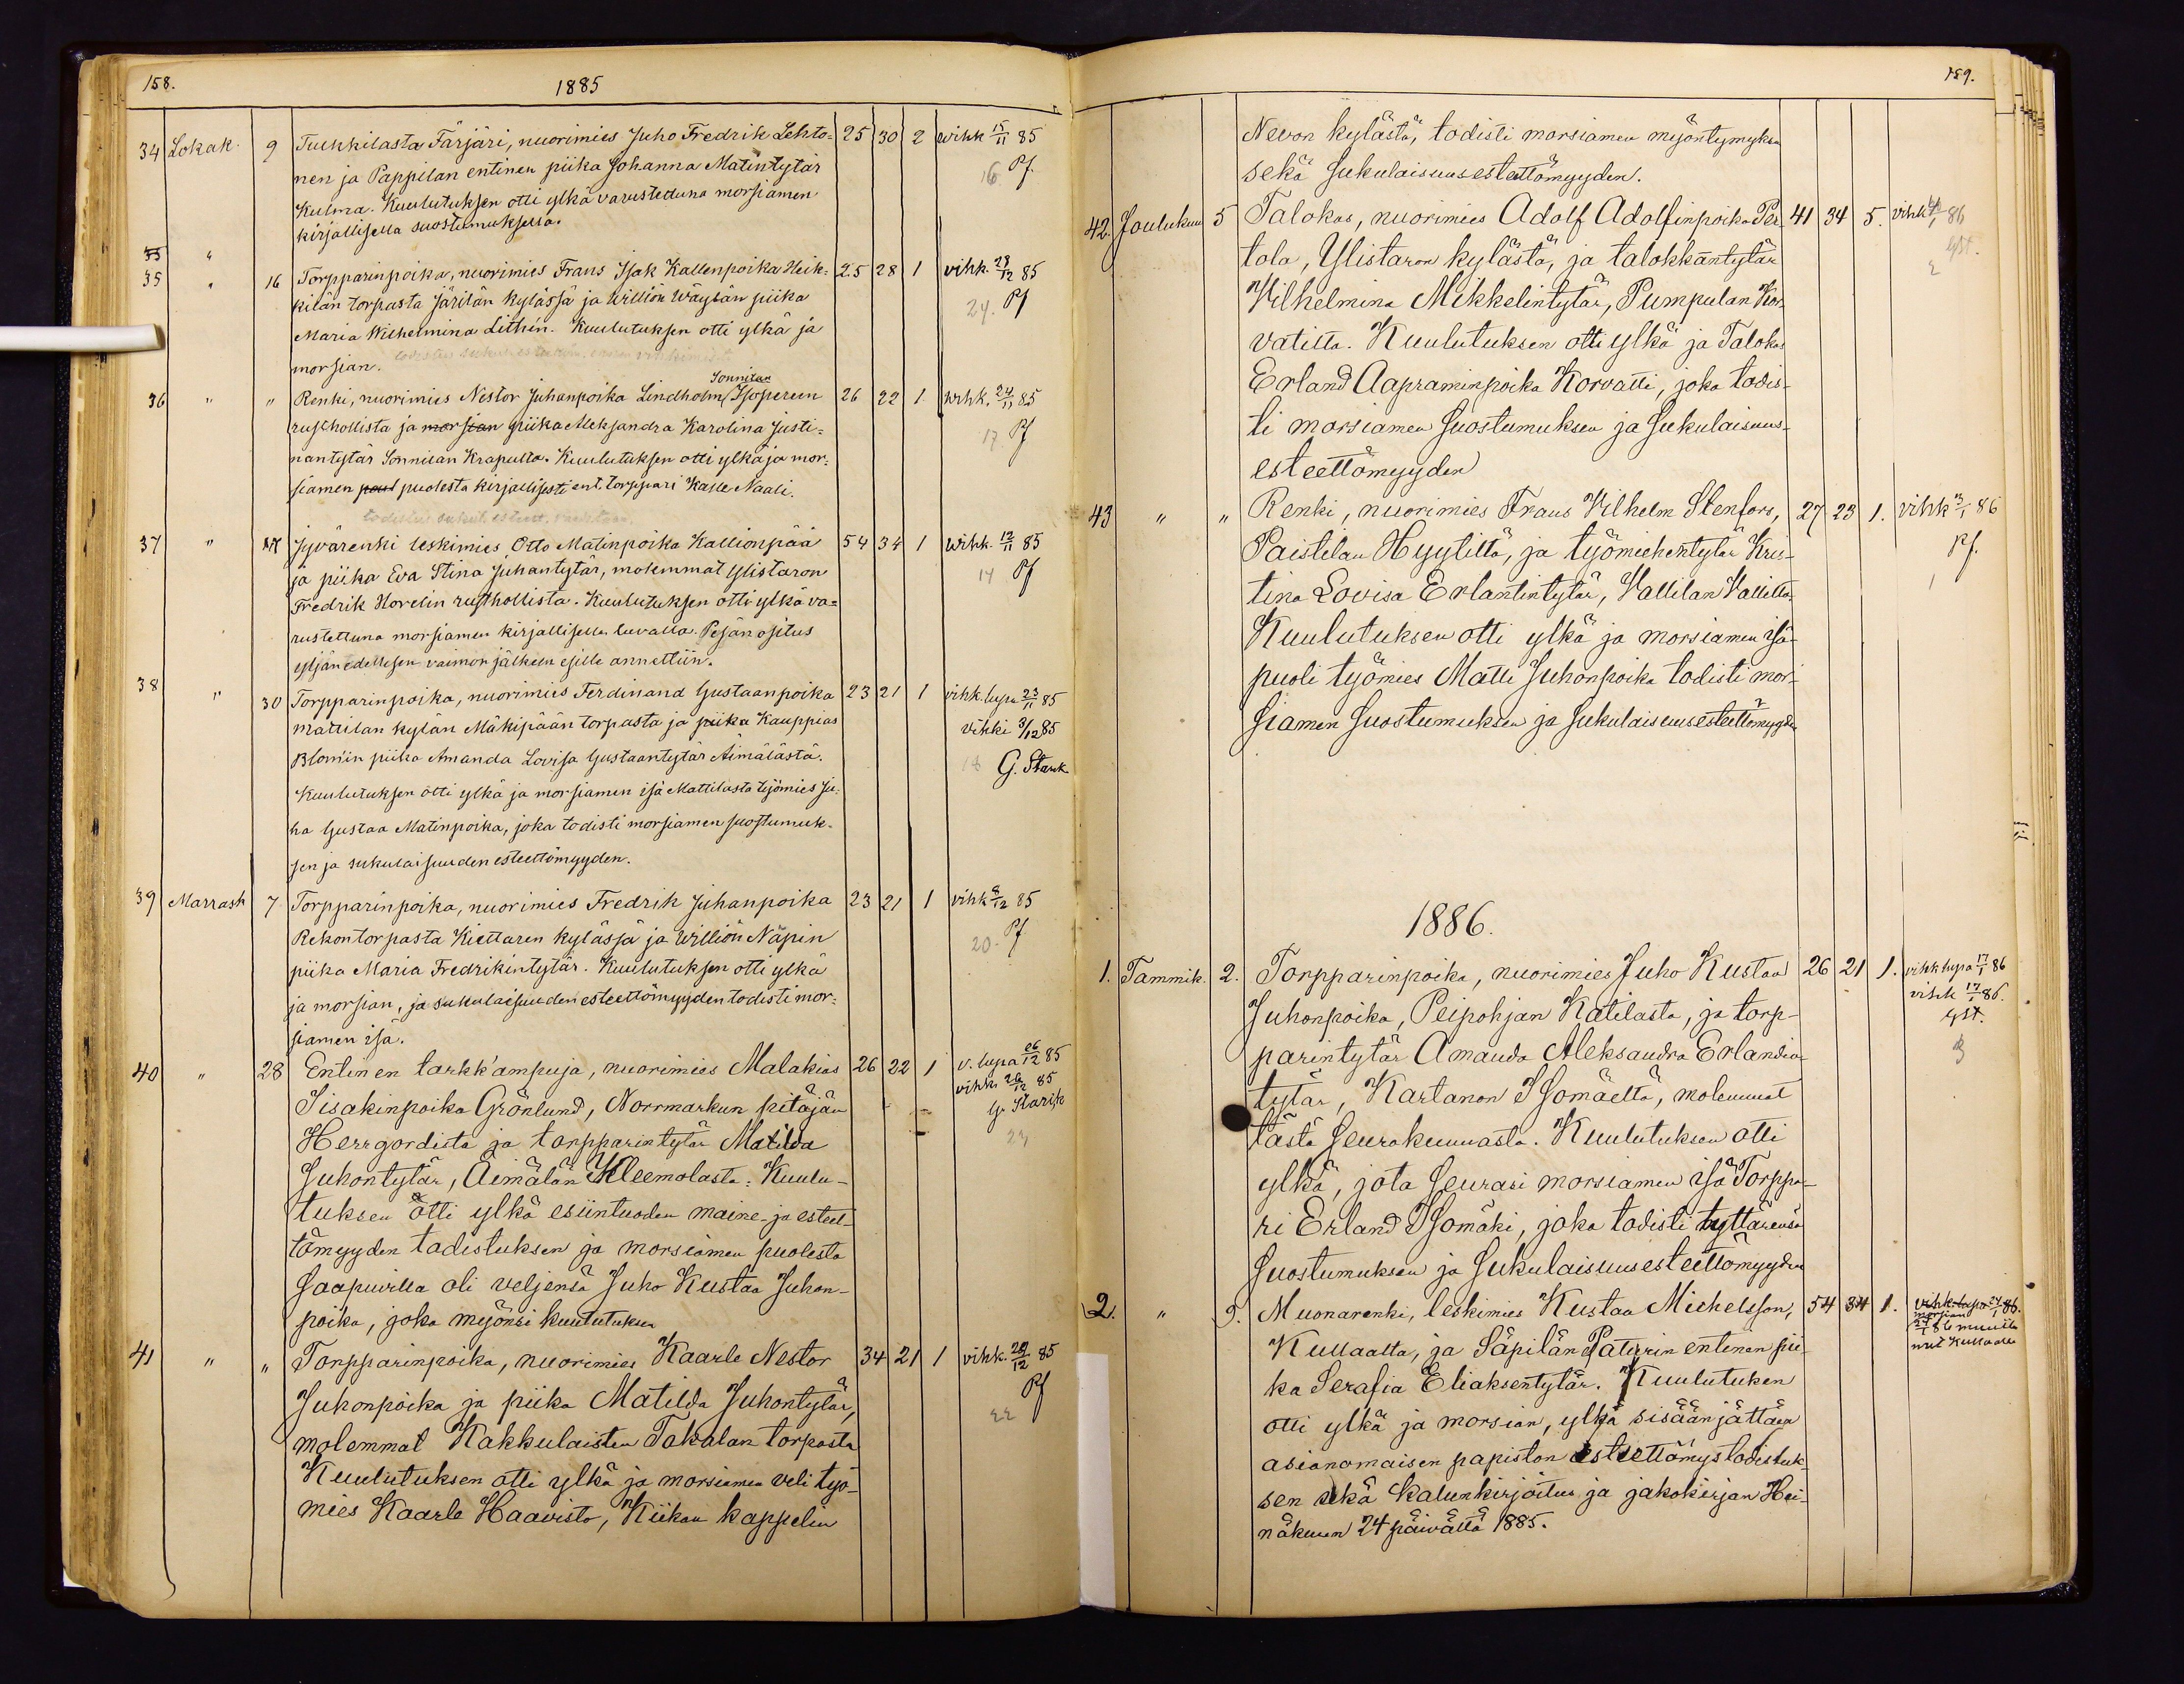 158.
1885
34 Lokak. 9 Tukkilasta Färjäri, nuorimies Juho Fredrik Lehto= 25 30 2 wihk 15/11 85
nen ja Pappilan entinen piika Johanna Matintytär 16. Pf.
Kulma. Kuulutuksen otti ylkä varustettuna morsiamen
kirjallisella suostumuksella.
35 "
35 " 16 Torpparinpoika, nuorimies Frans Isak Kallenpoika Heik= 25 28 1 vihk. 28/12 85
kilän torpasta Järilän kylässä ja Williön Wäysän piika 24. Pf
Maria Wilhelmina Lithén. Kuulutuksen otti ylkä ja
morsian.
Sonnilan
36 " " Renki, nuorimies Nestor Juhanpoika Lindholm Isopereen 26 22 1 wihk. 24/11 85
rusthollista ja morsian piika Aleksandra Karolina Justi= 17. Pf
nantytär Sonnilan Krapulta. Kuulutuksen otti ylkä ja mor=
siamen puol puolesta kirjallisesti ent. torppari Kalle Naali.
37 " 17 Jyvärenki leskimies Otto Matinpoika Kallionpää 54 34 1 wihk. 12/11 85
ja piika Eva Stina Juhantytär, molemmat Ylistaron 14 Pf
Fredrik Horelin rusthollista. Kuulutuksen otti ylkä va=
rustettuna morsiamen kirjallisella luvalla. Pesän ositus
yljän edellisen vaimon jälkeen esille annettiin.
38 " 30 Torpparinpoika, nuorimies Ferdinand Gustaanpoika 23 21 1 vihk. lupa 23/11 85
Mattilan kylän Mäkipään torpasta ja piika Kauppias vihki 3/12 85
Blom'in piika Amanda Lovisa Gustaantytär Äimälästä. 18 G. Stark
Kuulutuksen otti ylkä ja morsiamen isä Mattilasta työmies Ju=
ha Gustaa Matinpoika, joka todisti morsiamen suostumuk=
sen ja sukulaisuuden esteettömyyden.
39 Marrask 7 Torpparinpoika, nuorimies Fredrik Juhanpoika 23 21 1 vihk 8/12 85
Rekontorpasta Kiettaren kylässä ja Williön Näpin 20. Pf
piika Maria Fredrikintytär. Kuulutuksen otti ylkä
ja morsian, ja sukulaisuuden esteettömyyden todisti mor=
siamen isä.
40 " 28 Entinen tarkk'ampuja, nuorimies Malakias 26 22 1 v. lupa 26/12 85
Iisakinpoika Grönlund, Norrmarkun pitäjän vihk. 26/12 85
Herrgordista ja torpparintytär Matilda
Juhontytär, Äimälän Kleemolasta. Kuulu-
tuksen otti ylkä esiintuoden maine- ja esteet-
tömyyden todistuksen ja morsiamen puolesta
saapuvilla oli veljensä Juho Kustaa Juhon-
poika, joka myönsi kuulutuksen
41 " " Torpparinpoika, nuorimies Kaarle Nestor 34 21 1 vihk. 28/12 85
Juhonpoika ja piika Matilda Juhontytär, Pf
molemmat Kakkulaisten Takalan torpasta 22
Kuulutuksen otti ylkä ja morsiamen veli työ-
mies Kaarle Haavisto, Kiikan kappelin
159.
Nevon kylästä, todisti morsiamen myöntymyksen
sekä sukulaisuusesteettömyyden.
42. Joulukuu 5 Talokas, nuorimies Adolf Adolfinpoika Per- 41 34 5. vihk 86
tola, Ylistaron kylästä, ja talokkantytär GSt.
Vilhelmina Mikkelintytär, Pumpulan Kor- 2
vatilta. Kuulutuksen otti ylkä ja Talokas
Erland Aapraminpoika Korvatti, joka todis-
ti morsiamen suostumuksen ja sukulaisuus-
esteettömyyden
43 " " Renki, nuorimies Frans Vilhelm Stenfors, 27 23 1. vihk 3/1 86
Paistilan Hyytiltä, ja työmiehentytär Kris- Pf.
tina Lovisa Erlantintytär, Vallilan Vallilta. 1
Kuulutuksen otti ylkä ja morsiamen isä-
puoli työmies Matti Juhonpoika todisti mor-
siamen suostumuksen ja sukulaisuusesteettömyyden
1886.
1. Tammik. 2. Torpparinpoika, nuorimies Juho Kustaa 26 21 1. vihk lupa 17/1 86
Juhonpoika, Peipohjan Katilasta, ja torp- vihk 17/1 86.
parintytär Amanda Aleksandra Erlandin- GSt.
tytär, Kartanon Isomäeltä, molemmat 3
tästä seurakunnasta. Kuulutuksen otti
ylkä, jota seurasi morsiamen isä Torppa-
ri Erland Isomäki, joka todisti tyttärensä
suostumuksen ja sukulaisuusesteettömyyden
2. " 9. Muonarenki, leskimies Kustaa Michelsson, 54 34 1. vihk. lupa 24/1 86.
Kullaalta, ja Säpilän Paturin entinen pii- morsian 24/1 86 muutta
ka Serafia Eliaksentytär. Kuulutuksen nut Kullaalle
otti ylkä ja morsian, ylkä sisäänjättäen
asianomaisen papiston esteettömystodistuk-
sen sekä kalunkirjoitus ja jakokirjan Hei-
näkuun 24 päivältä 1885.